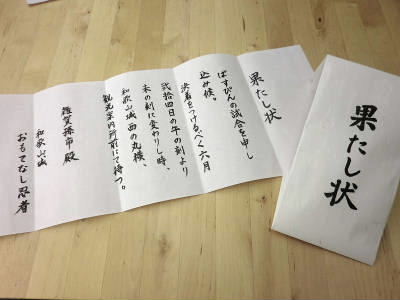 果たし状
ばすぴんの試合を申し
込み候。
決着をつけるべく六月
弐拾四日の午の刻より
未の刻に変わりし時、
和歌山城西の丸横、
観光案内所前にて待つ。
雑賀孫市殿
和歌山城
おもてなし忍者
果たし状